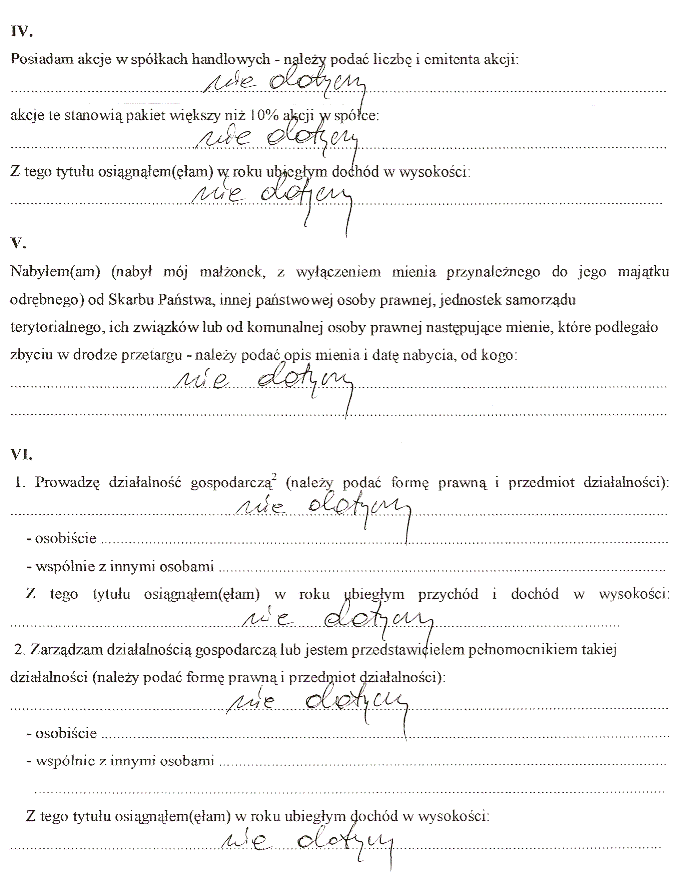 IV.
Posiadam akcje w spółkach handlowych - należy podać liczbę i emitenta akcji:
nie dotyczy
akcje te stanowią pakiet większy niż 10% akcji w spółce:
nie dotyczy
Z tego tytułu osiągnąłem(ęłam) w roku ubiegłym dochód w wysokości:
nie dotyczy
V.
Nabyłem(am) (nabył mój małżonek, z wyłączeniem mienia przynależnego do jego majątku
odrębnego) od Skarbu Państwa, innej państwowej osoby prawnej, jednostek samorządu
terytorialnego, ich związków lub od komunalnej osoby prawnej następujące mienie, które podlegało
zbyciu w drodze przetargu - należy podać opis mienia i datę nabycia, od kogo:
nie dotyczy
VI.
1. Prowadzę działalność gospodarczą2 (należy podać formę prawną i przedmiot działalności):
nie dotyczy
- osobiście
- wspólnie z innymi osobami
Z tego tytułu osiągnąłem(ęłam) w roku ubiegłym przychód i dochód w wysokości:
nie dotyczy
2. Zarządzam działalnością gospodarczą lub jestem przedstawicielem pełnomocnikiem takiej
działalności (należy podać formę prawną i przedmiot działalności):
nie dotyczy
- osobiście
- wspólnie z innymi osobami
Z tego tytułu osiągnąłem(ęłam) w roku ubiegłym dochód w wysokości:
nie dotyczy